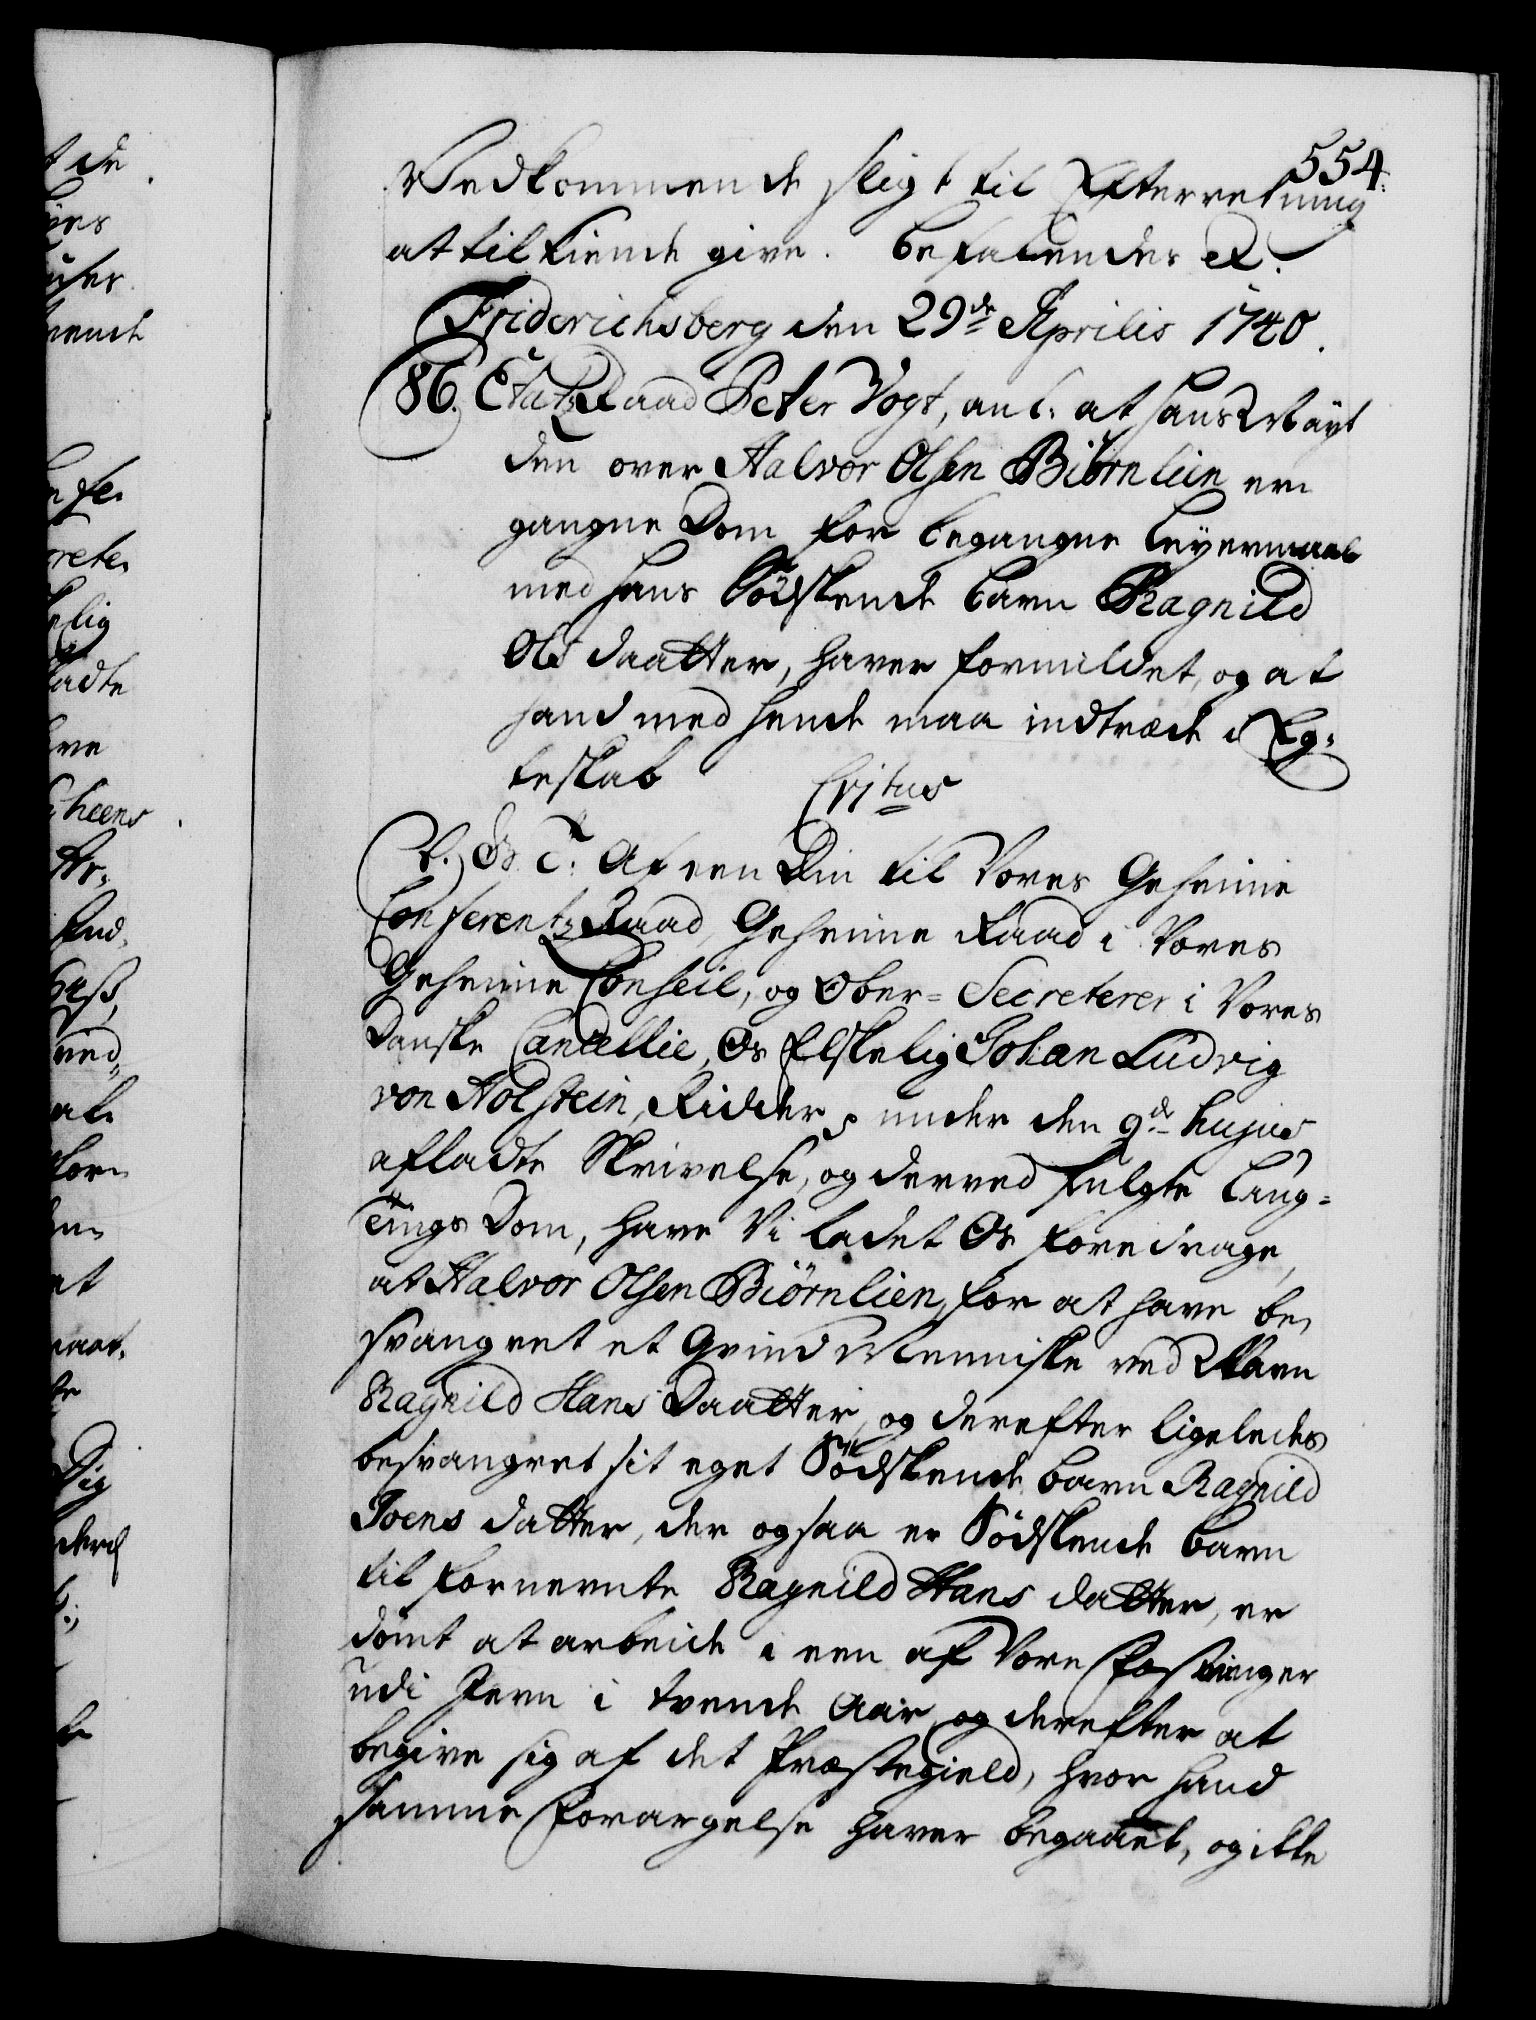 554.
Vedkommende sligt til Efterretning
at tilkiende give. Befalendes etc.
Friderichsberg den 29de Aprilis 1740.
86. EtatzRaad Peter Vogt, anl: at hans Mayt
den over Halvor Olsen Biörnlien er¬
gangne Dom for begangne Leyermaal
med hans Södskende barn Ragnild
Ols daatter, haver formildet, og at
hand med hende maa indtræde i Eg¬
teskab
C6tus
V. G. T. Af een Din til Vores Geheime
ConferentzRaad, Geheime Raad i Vores
Geheime Conseil, og Ober-Secreterer i Vores
Danske Cancellie, Os Elskelig Johan Ludvig
von Holstein, Ridder, under den 9de hujus
afladte Skrivelse, og derved fulgte Laug¬
Tings Dom, have Vi ladet Os foredrage,
at Halvor Olsen Biörnlien, for at have be¬
svangret et Qvind Menniske ved Navn
Ragnild Hans Daatter, og derefter ligeledes
besvangret sit eget Södskende barn Ragnild
Joens datter, der ogsaa er Södskende barn
til fornevnte Ragnild Hans datter, er
dömt at arbeide i een af Vore Fæstninger
udi Jern i tvende Aar, og derefter at
begive sig af det Præstegield, hvor hand
samme Forargelse haver begaaet, og ikke